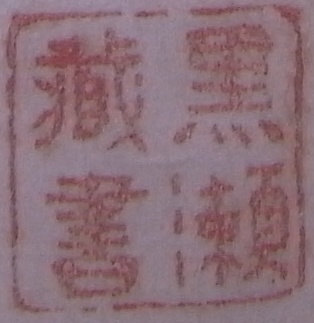 黒瀬
藏書